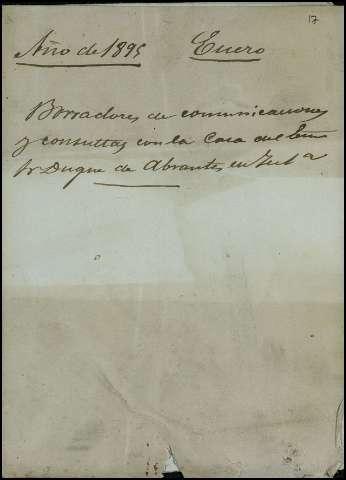 17
Año de 1895 Enero
Borradores de comunicaciones
y consultas con la Casa del Exmo
Sr Duque de Abrantes en